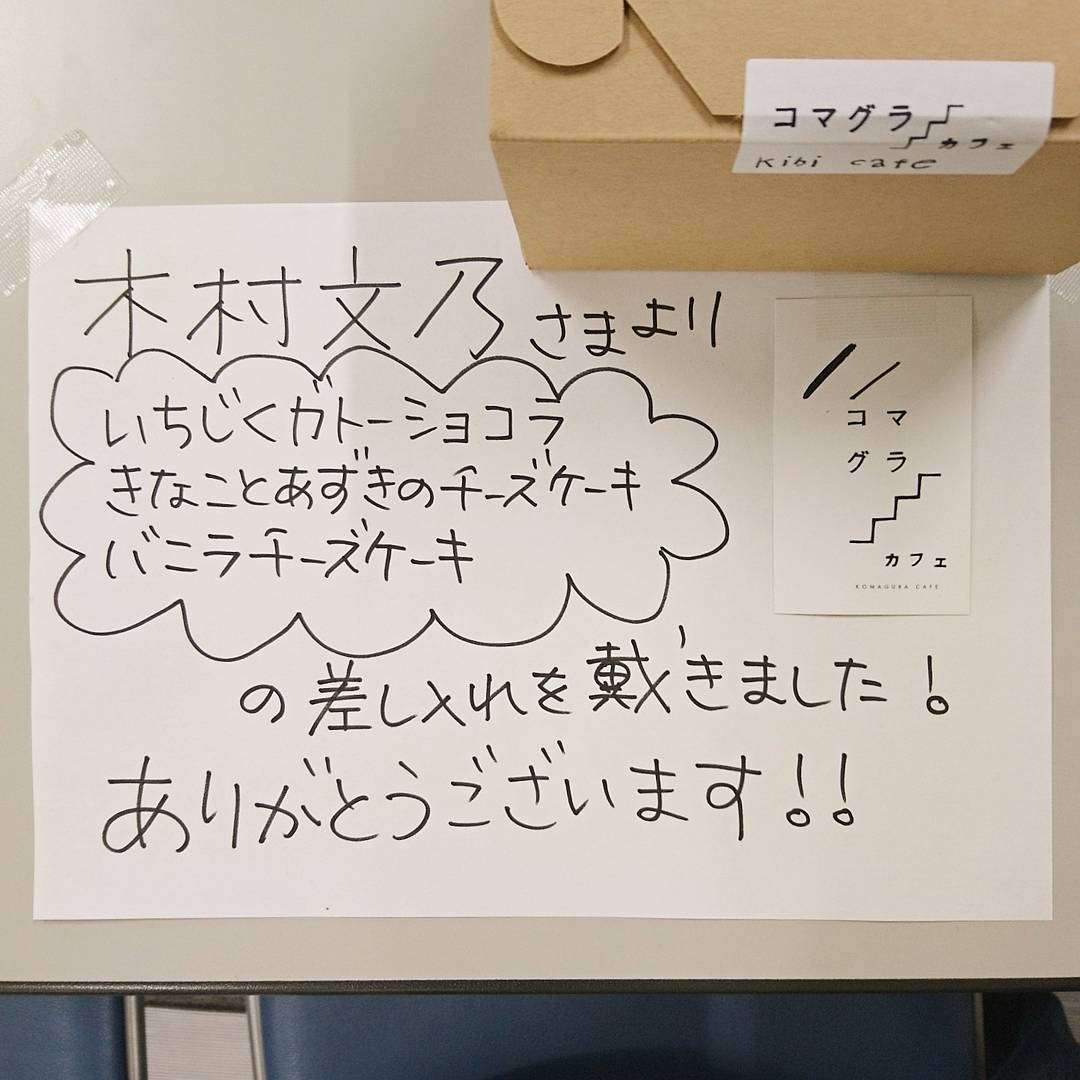 コマグラ
カフェ
Kibi cafe
木村文乃さまより
いちじくガトーショコラ
きなことあずきのチーズケーキ
バニラチーズケーキ
の差し入れを戴きました!
ありがとうございます!!
コマ
グラ
カフェ
KOMAGURA CAFE